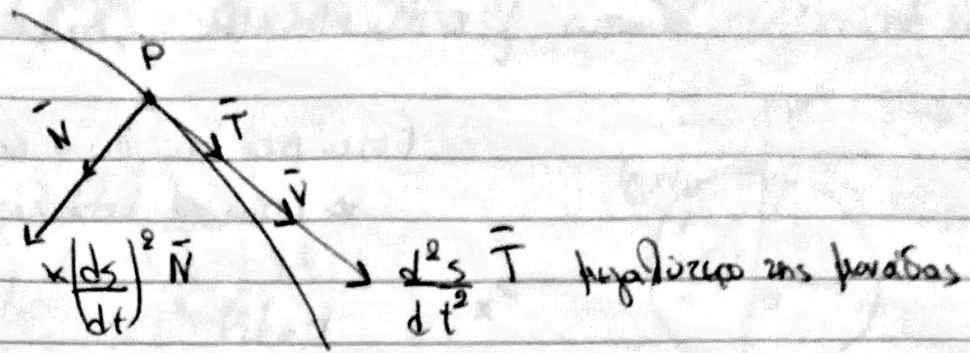 P
N̄ T̄
V̄
k(ds/dt)² N̄ d²s/dt² T̄ μεγαλύτερο της μονάδας